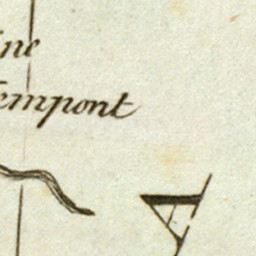 ine
empont